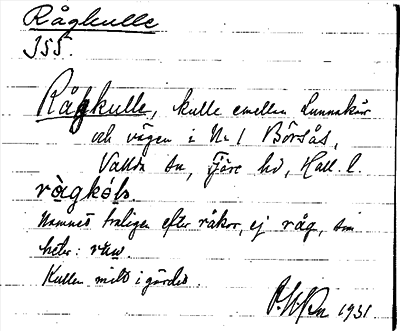 Rågkulle
355.
Råkkulle, kulle emellan Lunnakärr
och vägen i Nr 1 Börsås,
Vallda sn, Fjäre hd, Hall. l.
ràgkǿls.
Namnet troligen efter råkor, ej råg, som
heter: ruw.
Kullen mitt i gärdet.
1931